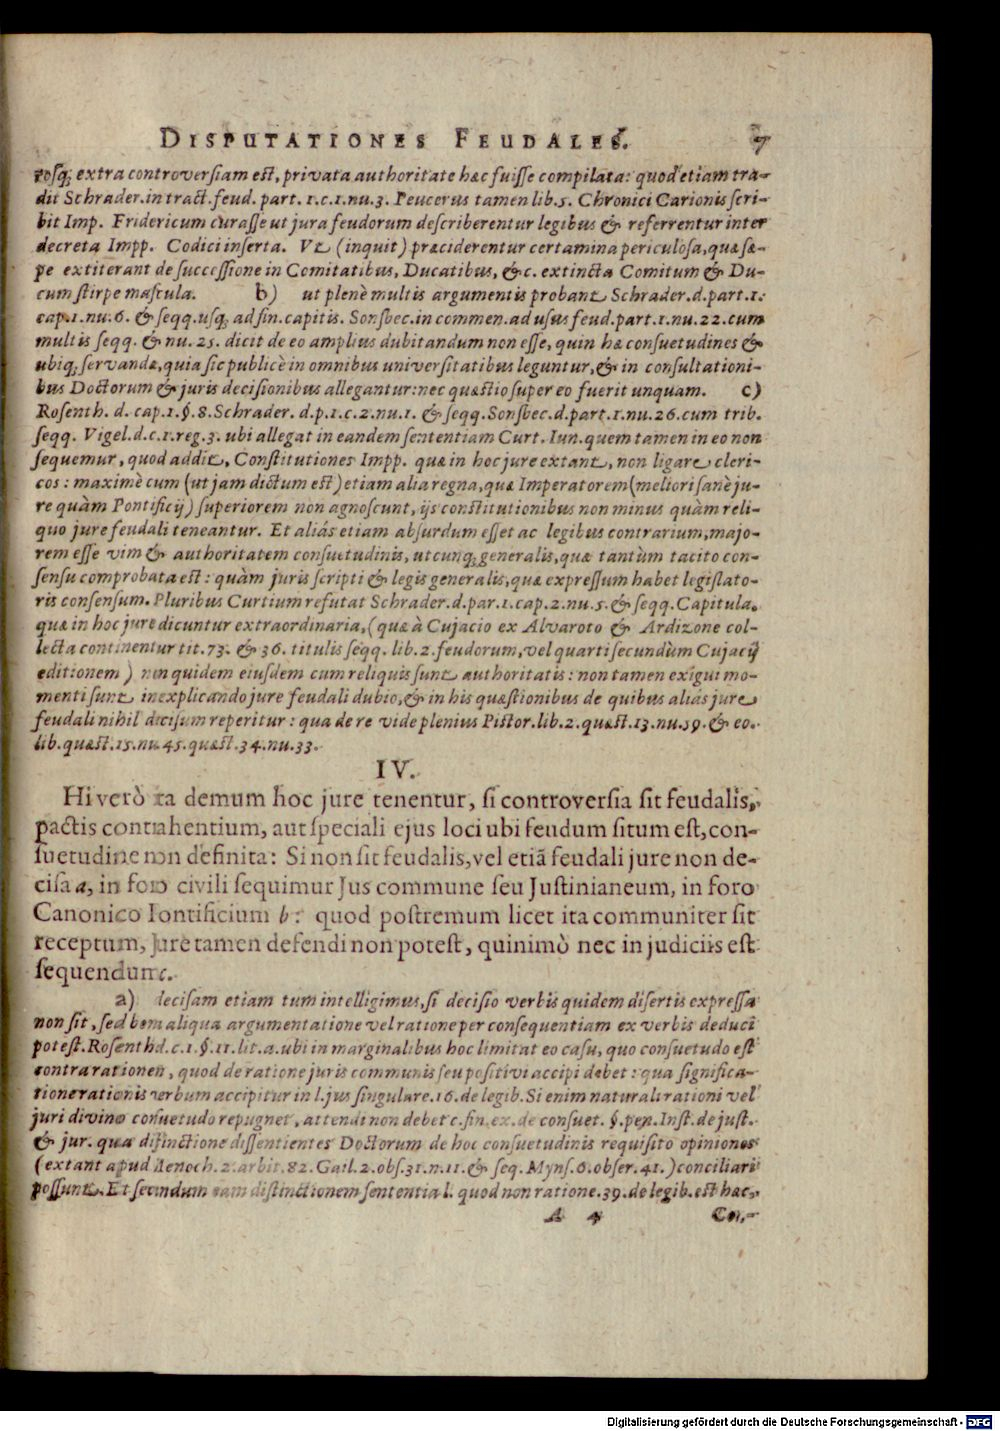 DISPUTATIONES FEUDALES. 7
rosq; extra controversiam est, privata authoritate hæc fuisse compilata: quod etiam tra-
dit Schrader. in tract. feud. part. 1. c. 1. nu. 3. Peucerus tamen lib. 5. Chronici Carionis scri-
bit Imp. Fridericum curasse ut jura feudorum describerentur legibus & referrentur inter
decreta Impp. Codici inserta. Vt (inquit) præciderentur certamina periculosa, quæ sæ-
pe extiterant de successione in Comitatibus, Ducatibus, &c. extincta Comitum & Du-
cum stirpe mascula. b) ut plenè multis argumentis probant Schrader. d. part. 1.
cap. 1. nu. 6. & seqq. usq; ad fin. capitis. Sonsbec. in commen. ad usus feud. part. 1. nu. 22. cum
multis seqq. & nu. 25. dicit de eo amplius dubitandum non esse, quin hæ consuetudines &
ubiq; servandæ, quia sic publicè in omnibus universitatibus leguntur, & in consultationi-
bus Doctorum & juris decisionibus allegantur: nec quæstio super eo fuerit unquam. c)
Rosenth. d. cap. 1. §. 8. Schrader. d. p. 1. c. 2. nu. 1. & seqq. Sonsbec. d. part. 1. nu. 26. cum trib.
seqq. Vigel. d. c. 1. reg. 3. ubi allegat in eandem sententiam Curt. Iun. quem tamen in eo non
sequemur, quod addit, Constitutiones Impp. quæ in hoc jure extant, non ligare cleri-
cos: maximè cum (ut jam dictum est) etiam alia regna, quæ Imperatorem (meliori sanè ju-
re quàm Pontificij) superiorem non agnoscunt, ijs constitutionibus non minus quàm reli-
quo jure feudali teneantur. Et aliás etiam absurdum esset ac legibus contrarium, majo-
rem esse vim & authoritatem consuetudinis, utcunq; generalis, quæ tantùm tacito con-
sensu comprobata est: quàm juris scripti & legis generalis, quæ expressum habet legislato-
ris consensum. Pluribus Curtium refutat Schrader. d. par. 1. cap. 2. nu. 5. & seqq. Capitula,
quæ in hoc jure dicuntur extraordinaria, (quæ à Cujacio ex Alvaroto & Ardizone col-
lecta continentur tit. 73. & 36. titulis seqq. lib. 2. feudorum, vel quarti secundùm Cujacij
editionem) non quidem ejusdem cum reliquis sunt authoritatis: non tamen exigui mo-
menti sunt in explicando jure feudali dubio, & in his quæstionibus de quibus aliás jure
feudali nihil decisum reperitur: qua de re vide plenius Pistor. lib. 2. quæst. 13. nu. 59. & eo.
lib. quæst. 15. nu. 45. quæst. 34. nu. 33.
IV.
Hi verò ita demum hoc jure tenentur, si controversia sit feudalis,
pactis contrahentium, aut speciali ejus loci ubi feudum situm est, con-
suetudine non definita: Si non sit feudalis, vel etiã feudali jure non de-
cisa a, in foro civili sequimur Jus commune seu Justinianeum, in foro
Canonico Pontificium b: quod postremum licet ita communiter sit
receptum, Jure tamen defendi non potest, quinimò nec in judiciis est
sequendum c.
a) decisam etiam tum intelligimus, si decisio verbis quidem disertis expressa
non sit, sed bona aliqua argumentatione vel ratione per consequentiam ex verbis deduci
potest. Rosenthd. c. 1. §. 11. lit. a. ubi in marginalibus hoc limitat eo casu, quo consuetudo est
contra rationem, quod de ratione juris communis seu positivi accipi debet: qua significa-
tione rationis verbum accipitur in l. jus singulare. 16. de legib. Si enim naturali rationi vel
juri divino consuetudo repugnet, attendi non debet c. fin. ex. de consuet. §. pen. Inst. de just.
& jur. qua distinctione dissentientes Doctorum de hoc consuetudinis requisito opiniones
(extant apud Menoch. 2. arbit. 82. Gail. 2. obs. 31. n. 11. & seq. Myns. 6. obser. 41.) conciliari
possunt. Et secundum eam distinctionem sententia l. quod non ratione. 39. de legib. est hæc,
A 4 Con-
Digitalisierung gefördert durch die Deutsche Forschungsgemeinschaft - DFG